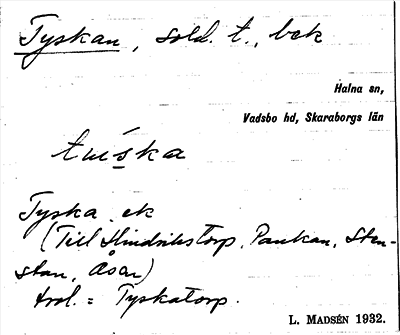 Tyskan, sold. t., bek
Halna sn,
Vadsbo hd, Skaraborgs län
Tyska ek
(Till Hindrikstorp, Pankan, Sten-
stan, Åsen)
trol. = Tyskatorp.
L. MADSÉN 1932.